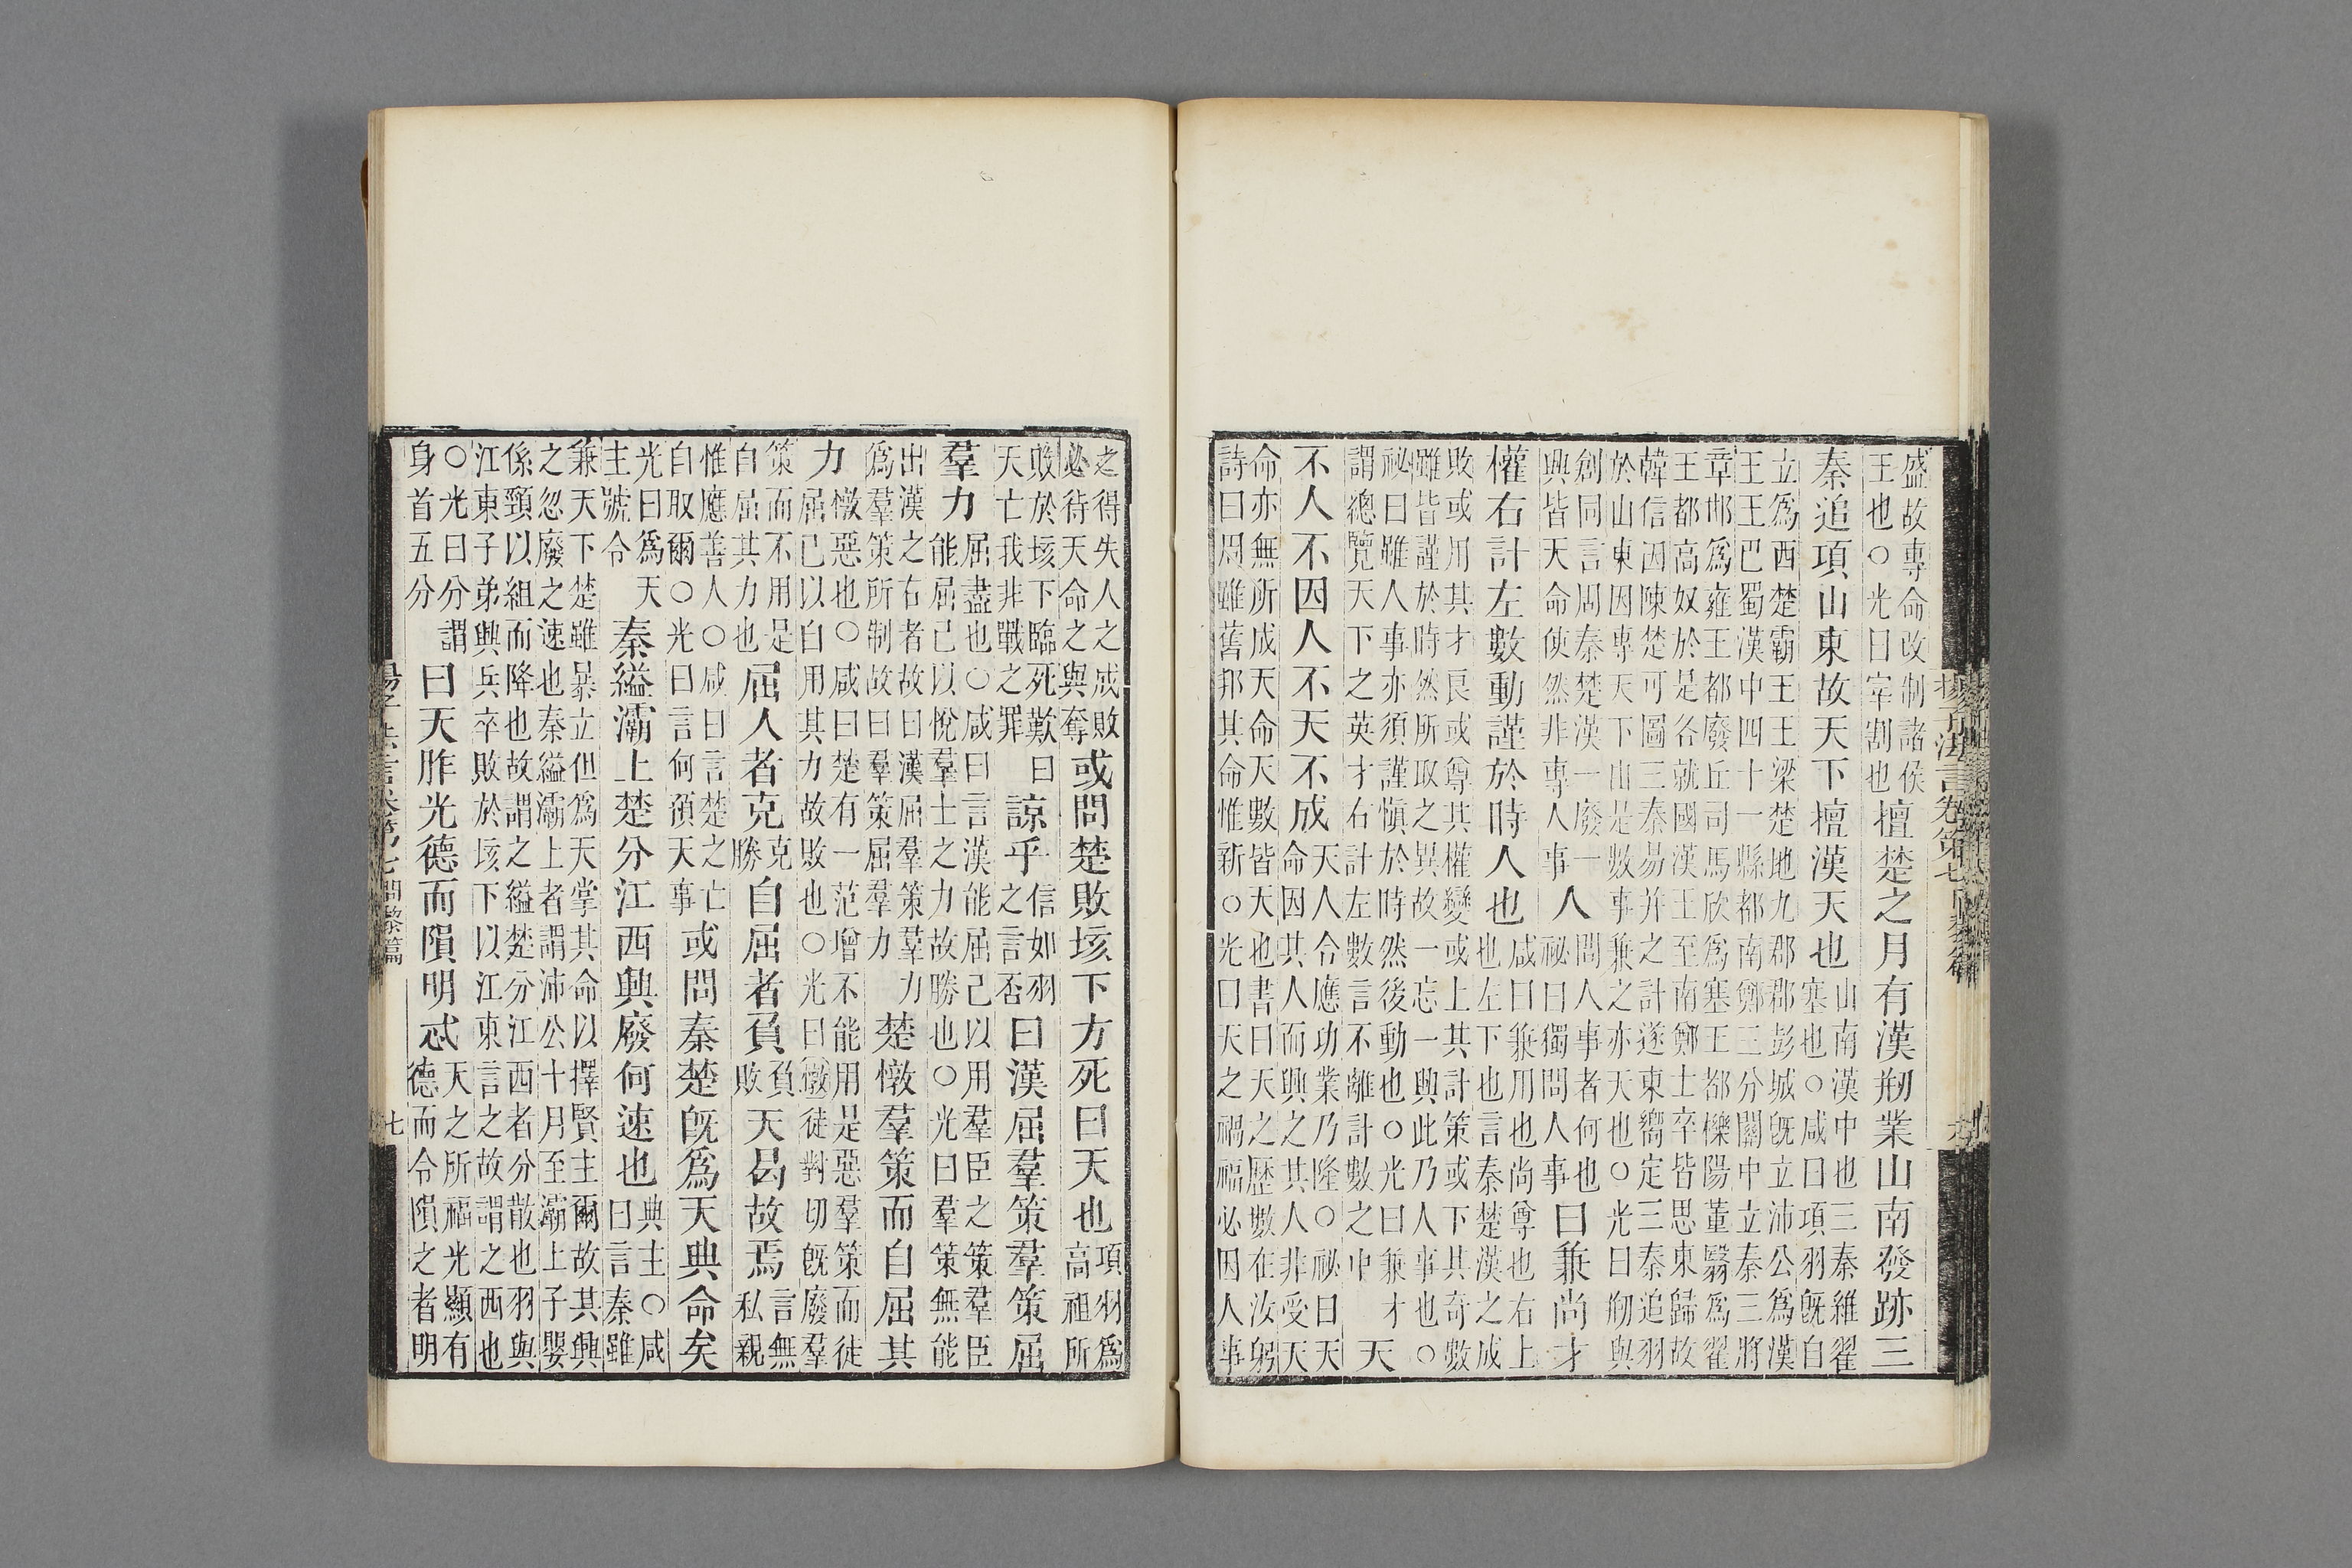 揚子法言卷第七 六
盛故專命改制諸侯王也○光曰宰割也擅楚之月有漢剏業山南發跡三
秦追項山東故天下擅漢天也山南漢中也三秦維翟塞也○咸曰項羽既自
立爲西楚霸王王梁楚地九郡郡彭城既立沛公爲漢王王巴蜀漢中四十一縣都南鄭三分關中立秦三將
章邯爲雍王都廢丘司馬欣爲塞王都櫟陽董翳爲翟王都高奴於是各就國漢王至南鄭士卒皆思東歸故
韓信因陳楚可圖三秦易并之計遂東嚮定三秦追羽於山東因專天下由是數事兼之亦天也○光曰剏與
創同言周秦楚漢一廢一興皆天命使然非專人事人問人事者何也祕曰獨問人事曰兼尚才
權右計左數動謹於時人也咸曰兼用也尚尊也右上也左下也言秦楚漢之成
敗或用其才良或尊其權變或上其計策或下其奇數雖皆謹於時然所取之異故一忘一興此乃人事也○
祕曰雖人事亦須謹慎於時然後動也○光曰兼才謂總覽天下之英才右計左數言不離計數之中天
不人不因人不天不成天人令應功業乃隆○祕曰天命因其人而興之其人非受天
命亦無所成天命天數皆天也書曰天之歷數在汝躬詩曰周雖舊邦其命惟新○光曰天之禍福必因人事
之得失人之成敗必待天命之與奪或問楚敗垓下方死曰天也項羽爲高祖所
敗於垓下臨死歎曰天亡我非戰之罪諒乎信如羽之言否曰漢屈羣策羣策屈
羣力屈盡也○咸曰言漢能屈己以用羣臣之策羣臣能屈己以悅羣士之力故勝也○光曰羣策無能
出漢之右者故曰漢屈羣策羣力爲羣策所制故曰羣策屈羣力楚憞羣策而自屈其
力憞惡也○咸曰楚有一范增不能用是惡羣策而徒屈已以自用其力故敗也○光曰憞徒對切既廢羣
策而不用是自屈其力也屈人者克克勝自屈者負負敗天曷故焉言無私親
惟應善人○咸曰言楚之亡自取爾○光曰言何預天事或問秦楚既爲天典命矣
光曰爲天主號令秦縊灞上楚分江西興廢何速也典主○咸曰言秦雖
兼天下楚雖暴立但爲天掌其命以擇賢主爾故其興之忽廢之速也秦縊灞上者謂沛公十月至灞上子嬰
係頸以組而降也故謂之縊楚分江西者分散也羽與江東子弟興兵卒敗於垓下以江東言之故謂之西也
○光曰分謂身首五分曰天胙光德而隕明忒天之所福光顯有德而令隕之者明
揚子法言卷第七 問黎篇 七